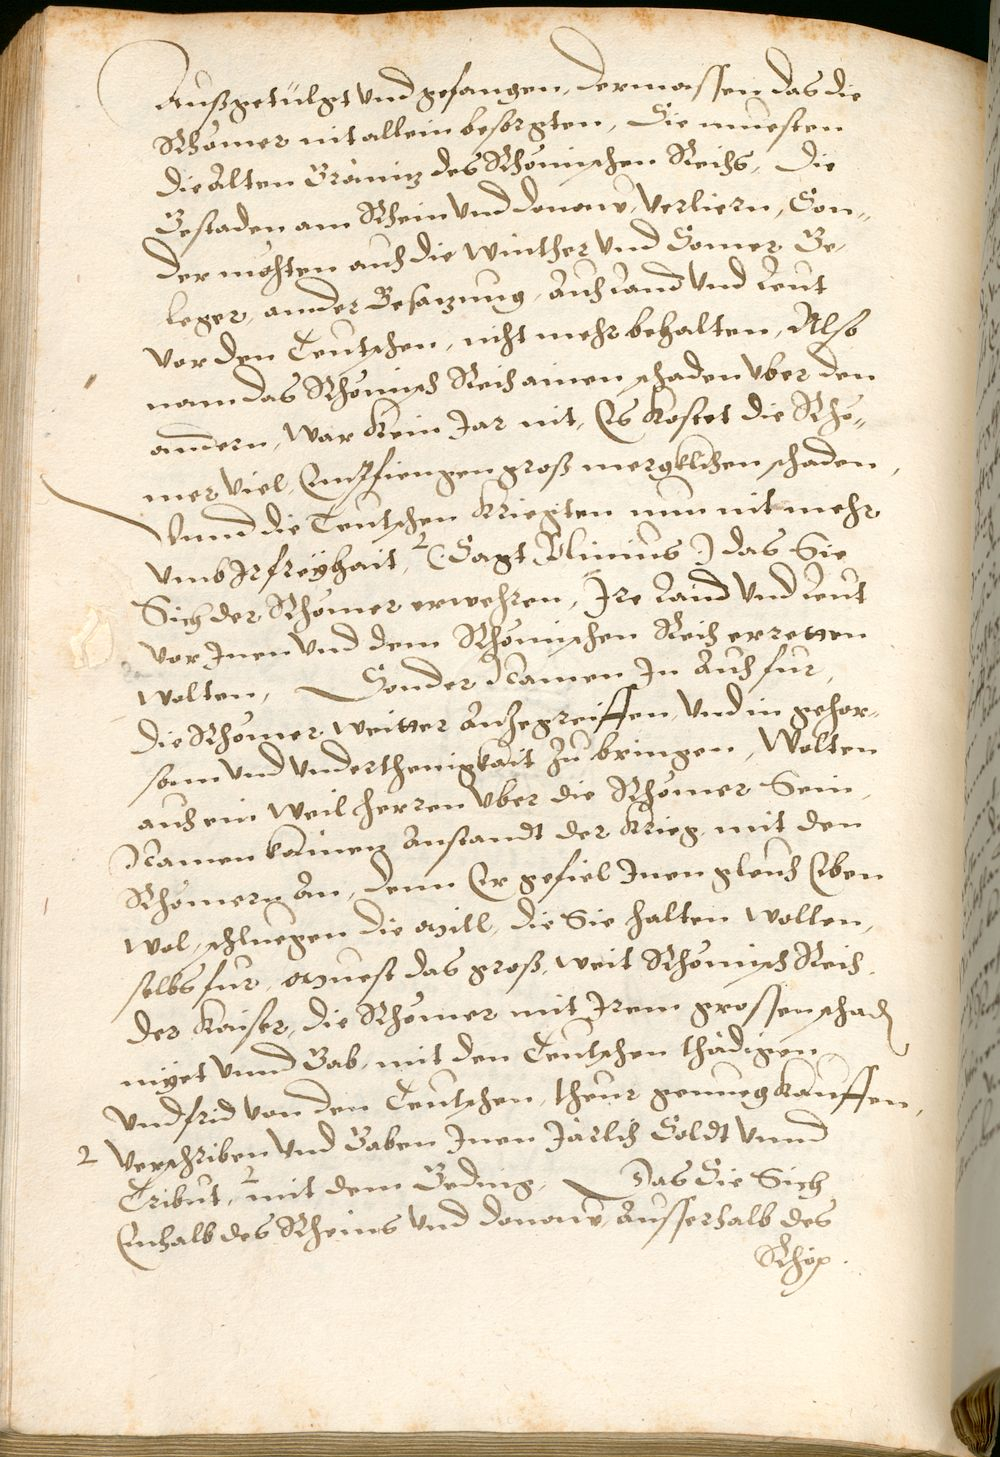 Außgetülgt vnd gefangen, dermassen das die
Rhömer nit allein besorgten, Sie muesten
die alten Gränitz des Rhömischen Reichs, die
Gestaden am Rhein vnd donaw, verliern, Son„
der möchten auch die winther vnd Somer Ge„
leger, annder Besatzung, auch Land vnd Leut
vor den Teutschen, nicht mehr behalten, Also
nam das Rhömisch Reich ainen schaden vber den
andern, war Kein Jar nit, Es kostet die Rhö„
mer viel, Empfiengen groß mergklichen schaden,
Vnnd die Teutschen kriegten nun nit mehr
vmb Ir freyhait, 2 (Sagt Plinius) das Sie
Sich der Rhömer erwehren, Ire Land vnd Leut
vor Inen vnd dem Rhömischen Reich erretten
wolten, Sonder Namen In auch fur,
die Rhömer weitter anzegreiffen, vnd in gehor„
sam vnd vnderthenigkait zu bringen, Wolten
auch ein weil herren vber die Rhömer Sein,
Namen kainen Anstandt der krieg, mit den
Rhömern an, denn Er gefiel Inen gleich Eben
wol, schluegen die Mitl, die Sie halten wollen,
selbs fur, Muest das groß, weit Rhömisch Reich,
der Kaiser, die Rhömer mit Irem grossen schad
myet vnnd Gab, mit den Teutschen thädigen
vnd frid von den Teutschen, theur genueg kauffen,
2 verschriben vnd Gaben Inen Järlich Soldt vnnd
Tribut, 2 mit dem Geding, Das Sie Sich
Enhalb des Rheins vnd donaw, Ausserhalb des
Rhöm.